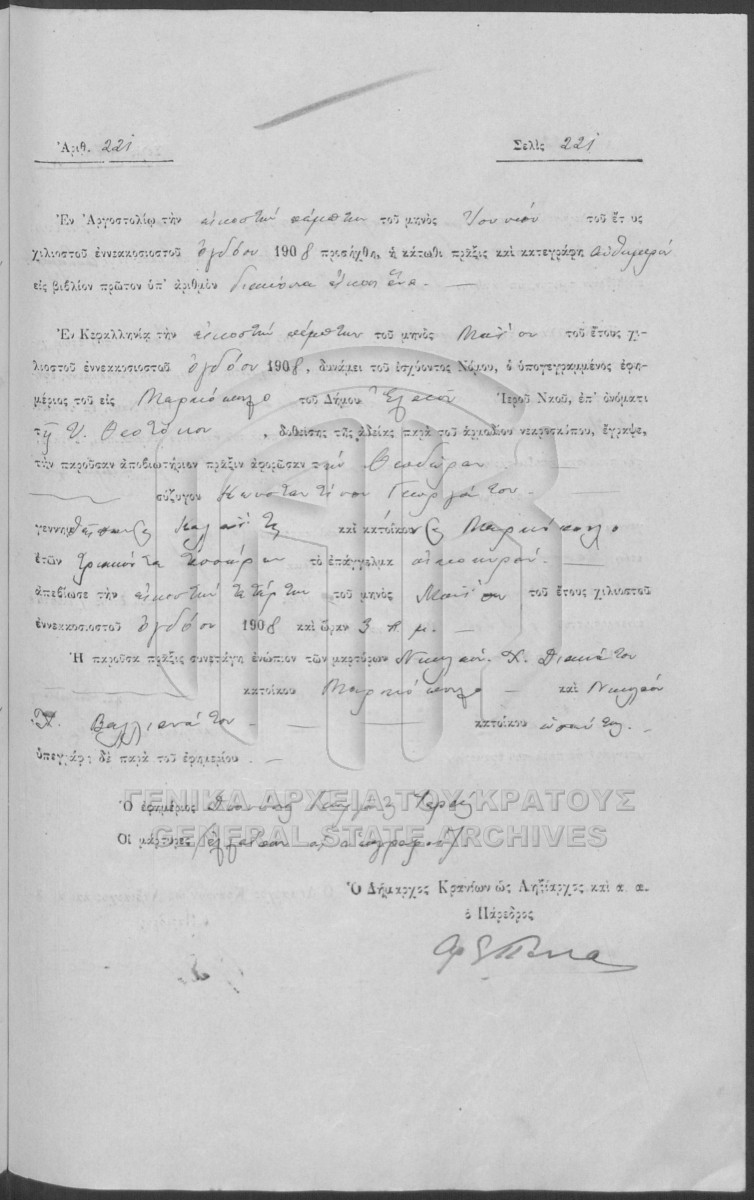 Ἀριθ. 221 Σελὶς 221
Ἐν Ἀργοστολίῳ τὴν εἰκοστὴν πέμπτην τοῦ μηνὸς Ἰουνίου τοῦ ἔτους
χιλιοστοῦ ἐννεακοσιοστοῦ ὀγδόου 1908 προσήχθη, ἡ κάτωθι πρᾶξις καὶ κατεγράφη αὐθημερὸν
εἰς βιβλίον πρῶτον ὑπ' ἀριθμὸν διακόσια εἴκοσι ἕνα. —
Ἐν Κεφαλληνίᾳ τὴν εἰκοστὴν πέμπτην τοῦ μηνὸς Μαΐου τοῦ ἔτους χι-
λιοστοῦ ἐννεακοσιοστοῦ ὀγδόου 1908, δυνάμει τοῦ ἰσχύοντος Νόμου, ὁ ὑπογεγραμμένος ἐφη-
μέριος τοῦ εἰς Μαρκόπουλο τοῦ Δήμου Ἐλειοῦ Ἱεροῦ Ναοῦ, ἐπ' ὀνόματι
τῆς Υ. Θεοτόκου, δοθείσης τῆς ἀδείας παρὰ τοῦ ἁρμοδίου νεκροσκόπου, ἔγραψε,
τὴν παροῦσαν ἀποβιωτήριον πρᾶξιν ἀφορῶσαν τὴν Θεοδώραν
σύζυγον Κωνσταντίνου Γεωργάτου
γεννηθεῖσαν καὶ κάτοικον Μαρκόπουλο
ἐτῶν τριακόντα τεσσάρων τὸ ἐπάγγελμα οἰκοκυρά. —
ἀπεβίωσε τὴν εἰκοστὴν τετάρτην τοῦ μηνὸς Μαΐου τοῦ ἔτους χιλιοστοῦ
ἐννεακοσιοστοῦ ὀγδόου 1908 καὶ ὥραν 3 π. μ. —
Ἡ παροῦσα πρᾶξις συνετάγη ἐνώπιον τῶν μαρτύρων Νικολάου Χ.
κατοίκου Μαρκόπουλο — καὶ Νικολάου
Βαλλιανάτου — κατοίκου ὡσαύτως. —
ὑπεγράφη δὲ παρὰ τοῦ ἐφημερίου. —
ΓΕΝΙΚΑ ΑΡΧΕΙΑ ΤΟΥ ΚΡΑΤΟΥΣ
Ὁ ἐφημέριος
GENERAL STATE ARCHIVES
Οἱ μάρτυρες
Ὁ Δήμαρχος Κρανίων ὡς Ληξίαρχος καὶ α. α.
ὁ Πάρεδρος